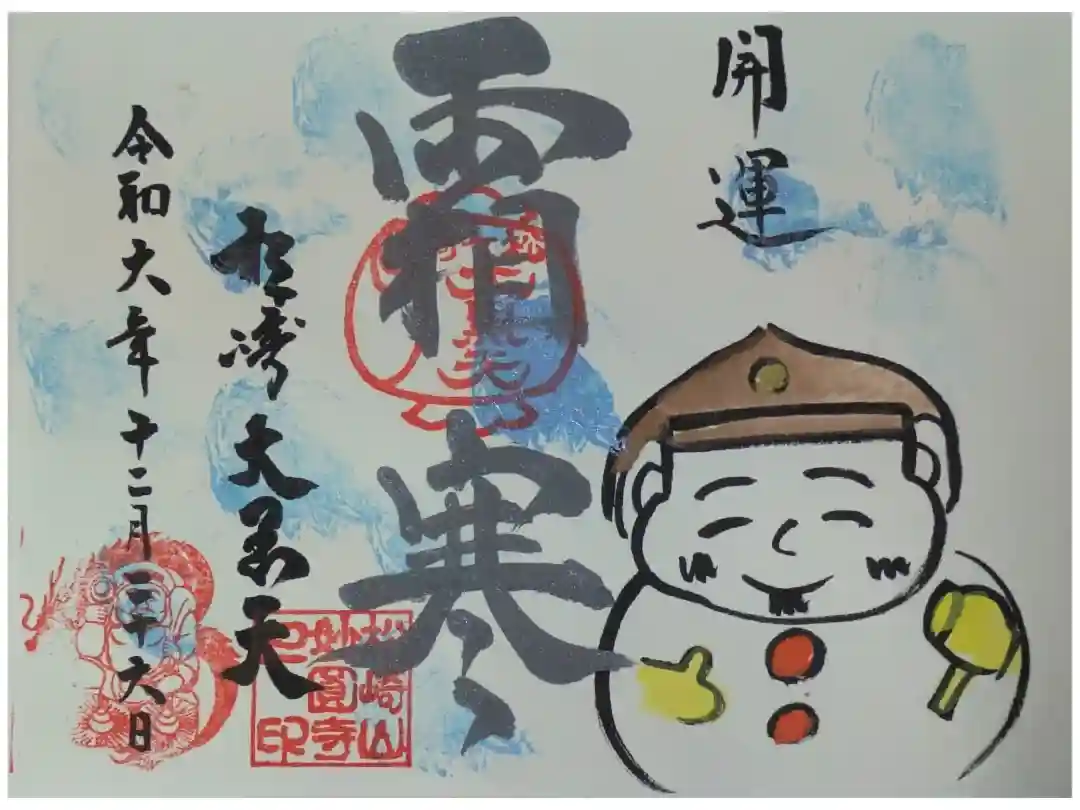 開運
霜寒
大黒天
令和六年十二月二十六日
松崎山
妙圓寺
之印